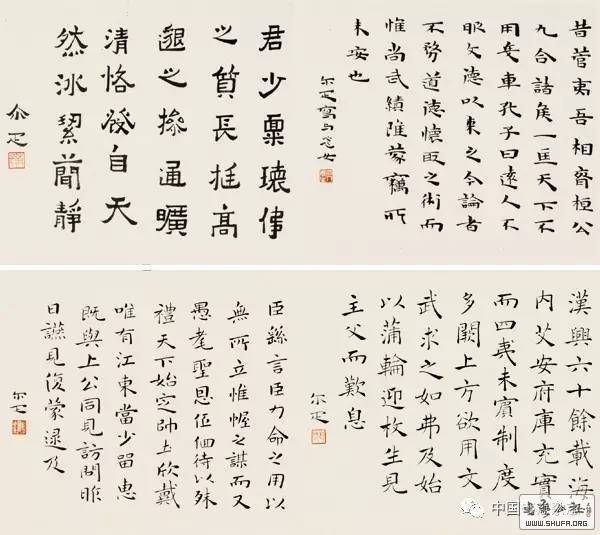 昔管夷吾相齊桓公
九合諸侯一匡天下不
用兵車孔子曰遠人不
服文德以來之今論者
不務道德懷臣之術而
惟尚武績雖蒙竊所
未安也
尔疋寫
君少稟瓌偉
之質長挺高
邈之操通曠
清恪發自天
然冰絜簡靜
尔疋
漢興六十餘載海
内艾安府庫充實
而四夷未賓制度
多闕上方欲用文
武求之如弗及始
以蒲輪迎枚生見
主父而歎息
尔疋
臣繇言臣力命之用以
無所立惟幄之謀而又
愚耄聖恩低佪待以殊
禮天下始定帥土欣戴
唯有江東當少留思
既與上公同見訪問昨
日讌見復蒙逮及
尔疋
中国
WWW.SHUFA.ORG